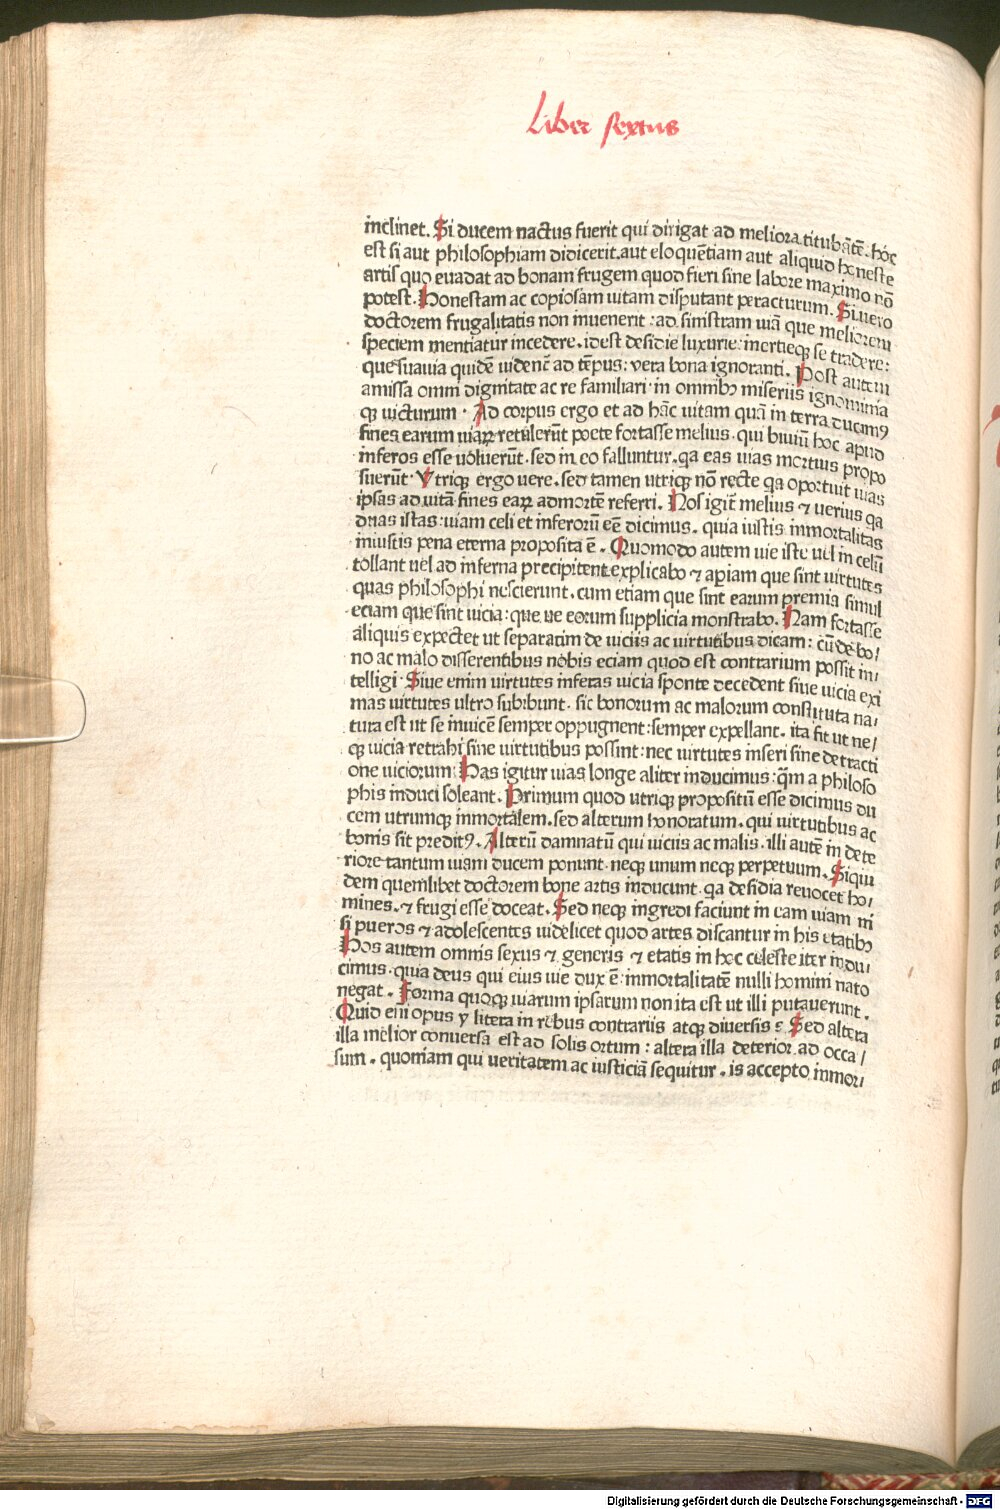 Liber sextus
inclinet. Si ducem nactus fuerit qui dirigat ad meliora titubātē. hoc
est si aut philosophiam didicerit. aut eloquētiam aut aliquid honeste
artis quo euadat ad bonam frugem quod fieri sine labore maximo nō
potest. Honestam ac copiosam uitam disputant peracturum. Si uero
doctorem frugalitatis non inuenerit : ad sinistram uiā que meliorem
speciem mentiatur incedere. idest desidie luxurie: inertieqꝫ se tradere:
que suauia quidē uidenť ad tēpus: vera bona ignoranti. Post autem
amissa omni dignitate ac re familiari in omnibꝫ miseriis ignominia
qꝫ uicturum. Ad corpus ergo et ad hāc uitam quā in terra ducimꝰ
fines earum uiaꝝ retulerūt poete fortasse melius. qui biuiū hoc apud
inferos esse uoluerūt. sed in eo falluntur. qa eas uias mortuis propo
suerūt. Vtriqꝫ ergo uere. sed tamen utriqꝫ nō recte qa oportuit uias
ipsas ad vitā fines eaꝝ admortē referri. Nos igiť melius ⁊ uerius qa
duas istas: uiam celi et inferorū eē dicimus. quia iustis immortalitas
iniustis pena eterna proposita ē. Quomodo autem uie iste uel in celū
tollant uel ad inferna precipitent. explicabo ⁊ apiam que sint uirtutes
quas philosophi nescierunt. cum etiam que sint earum premia simul
eciam que sint uicia: que ve eorum supplicia monstrabo. Nam fortasse
aliquis expectet ut separatim de uiciis ac uirtutibus dicam: cū de bo/
no ac malo disserentibus nobis eciam quod est contrarium possit in/
telligi. Siue enim virtutes inferas uicia sponte decedent siue uicia exi
mas uirtutes ultro subibunt. sic bonorum ac malorum constituta na/
tura est ut se inuicē semper oppugnent: semper expellant. ita fit ut ne/
cqꝫ uicia retrahi sine uirtutibus possint: nec virtutes inseri sine detracti
one uiciorum Has igitur uias longe aliter inducimus: qm̄ a philoso
phis induci soleant. Primum quod utriqꝫ propositū esse dicimus du
cem utrumqꝫ immortalem. sed alterum honoratum. qui uirtutibus ac
bonis sit preditꝰ. Alterū damnatū qui uiciis ac malis. illi autē in dete
riore tantum uiam ducem ponunt. neqꝫ unum neqꝫ perpetuum. Siqui
dem quemlibet doctorem bone artis inducunt. qa desidia reuocet ho/
mines. ⁊ frugi esse doceat. Sed neqꝫ ingredi faciunt in eam uiam ni
si pueros ⁊ adolescentes uidelicet quod artes discantur in his etatibꝫ
Nos autem omnis sexus ⁊ generis ⁊ etatis in hoc celeste iter indu/
cimus. quia deus qui eius uie dux ē. immortalitatē nulli homini nato
negat. Forma quoqꝫ uiarum ipsarum non ita est ut illi putauerunt.
Quid eni opus y litera in rebus contrariis atqꝫ diuersis ē. Sed altera
illa melior conuersa est ad solis ortum : altera illa deterior ad occa/
sum. quoniam qui ueritatem ac iusticiā sequitur. is accepto inmor/
Digitalisierung gefördert durch die Deutsche Forschungsgemeinschaft - DFG